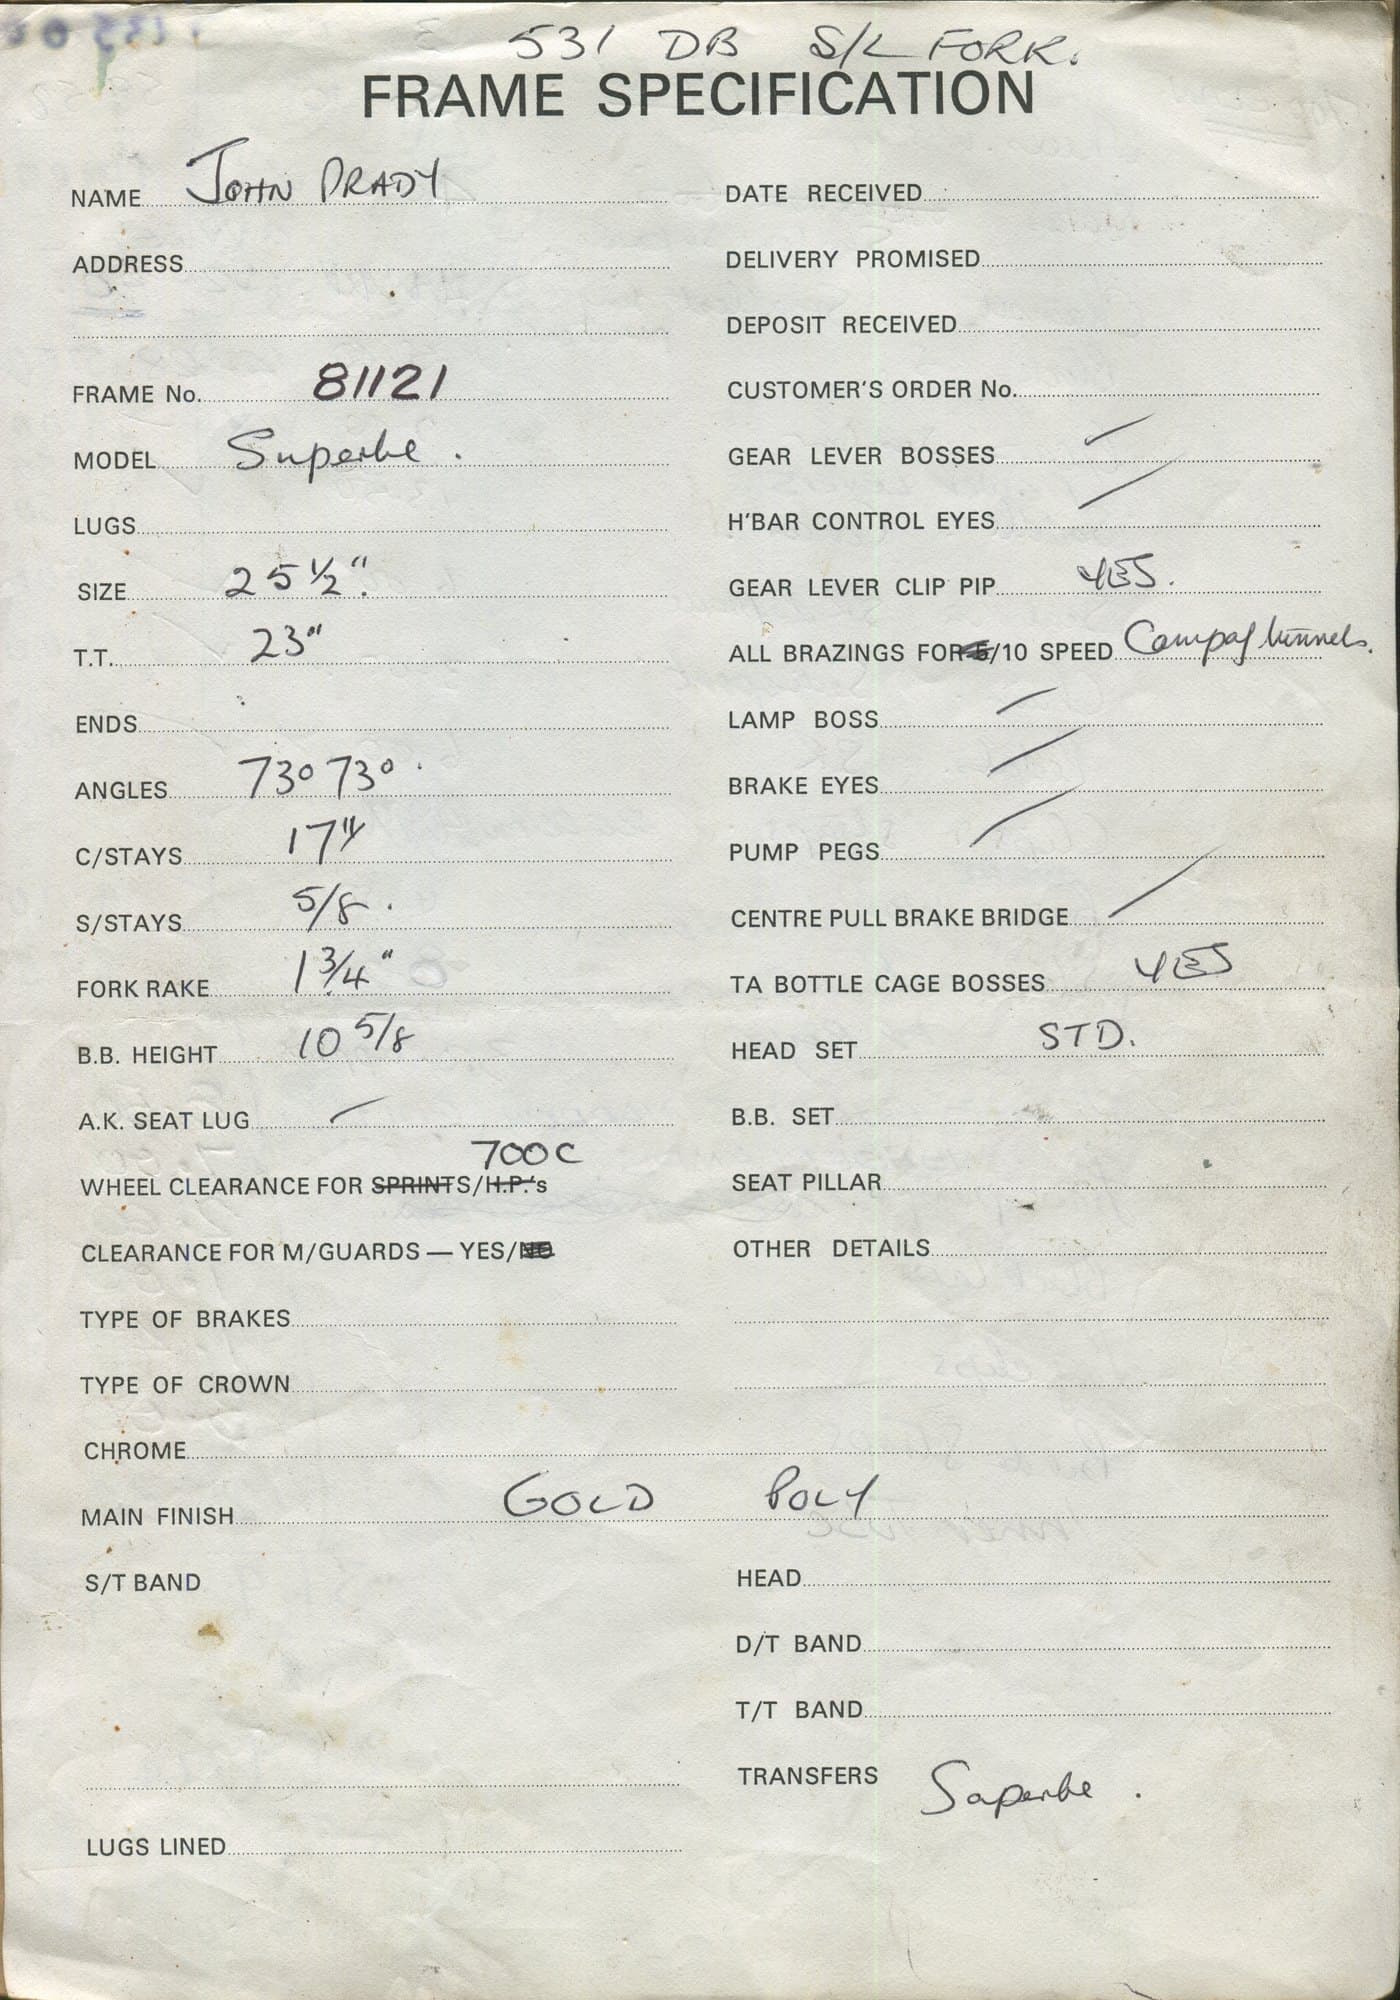 531 DB S/L FORK.
FRAME SPECIFICATION
NAME JOHN PRADY
ADDRESS
FRAME No. 81121
MODEL Superbe .
LUGS
SIZE 25 1/2".
T.T. 23"
ENDS
ANGLES 73° 73° .
C/STAYS 17"
S/STAYS 5/8 .
FORK RAKE 1 3/4"
B.B. HEIGHT 10 5/8
A.K. SEAT LUG /
700C
WHEEL CLEARANCE FOR SPRINTS/H.P.'s
CLEARANCE FOR M/GUARDS — YES/NO
TYPE OF BRAKES
TYPE OF CROWN
DATE RECEIVED
DELIVERY PROMISED
DEPOSIT RECEIVED
CUSTOMER'S ORDER No.
GEAR LEVER BOSSES /
H'BAR CONTROL EYES /
GEAR LEVER CLIP PIP YES.
ALL BRAZINGS FOR 5/10 SPEED Campag tunnels.
LAMP BOSS /
BRAKE EYES /
PUMP PEGS /
CENTRE PULL BRAKE BRIDGE /
TA BOTTLE CAGE BOSSES YES
HEAD SET STD.
B.B. SET
SEAT PILLAR
OTHER DETAILS
CHROME
MAIN FINISH GOLD POLY
S/T BAND
LUGS LINED
HEAD
D/T BAND
T/T BAND
TRANSFERS Superbe .